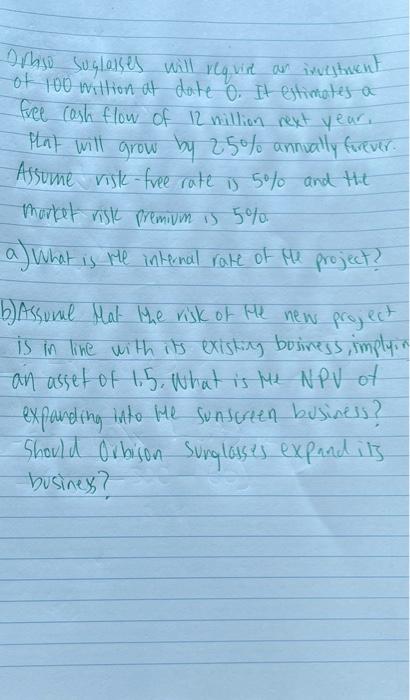 Orbiso suglasses will require an investment
of 100 million at date 0. It estimates a
free cash flow of 12 million next year,
that will grow by 25% annually forever.
Assume risk-free rate is 5% and the
market risk premium is 5%
a) What is the internal rate of the project?
b) Assume that the risk of the new project
is in line with its existing business, implyin
an asset of 1.5. What is the NPV of
expanding into the sunscreen business?
Should Orbison Sunglasses expand its
business?